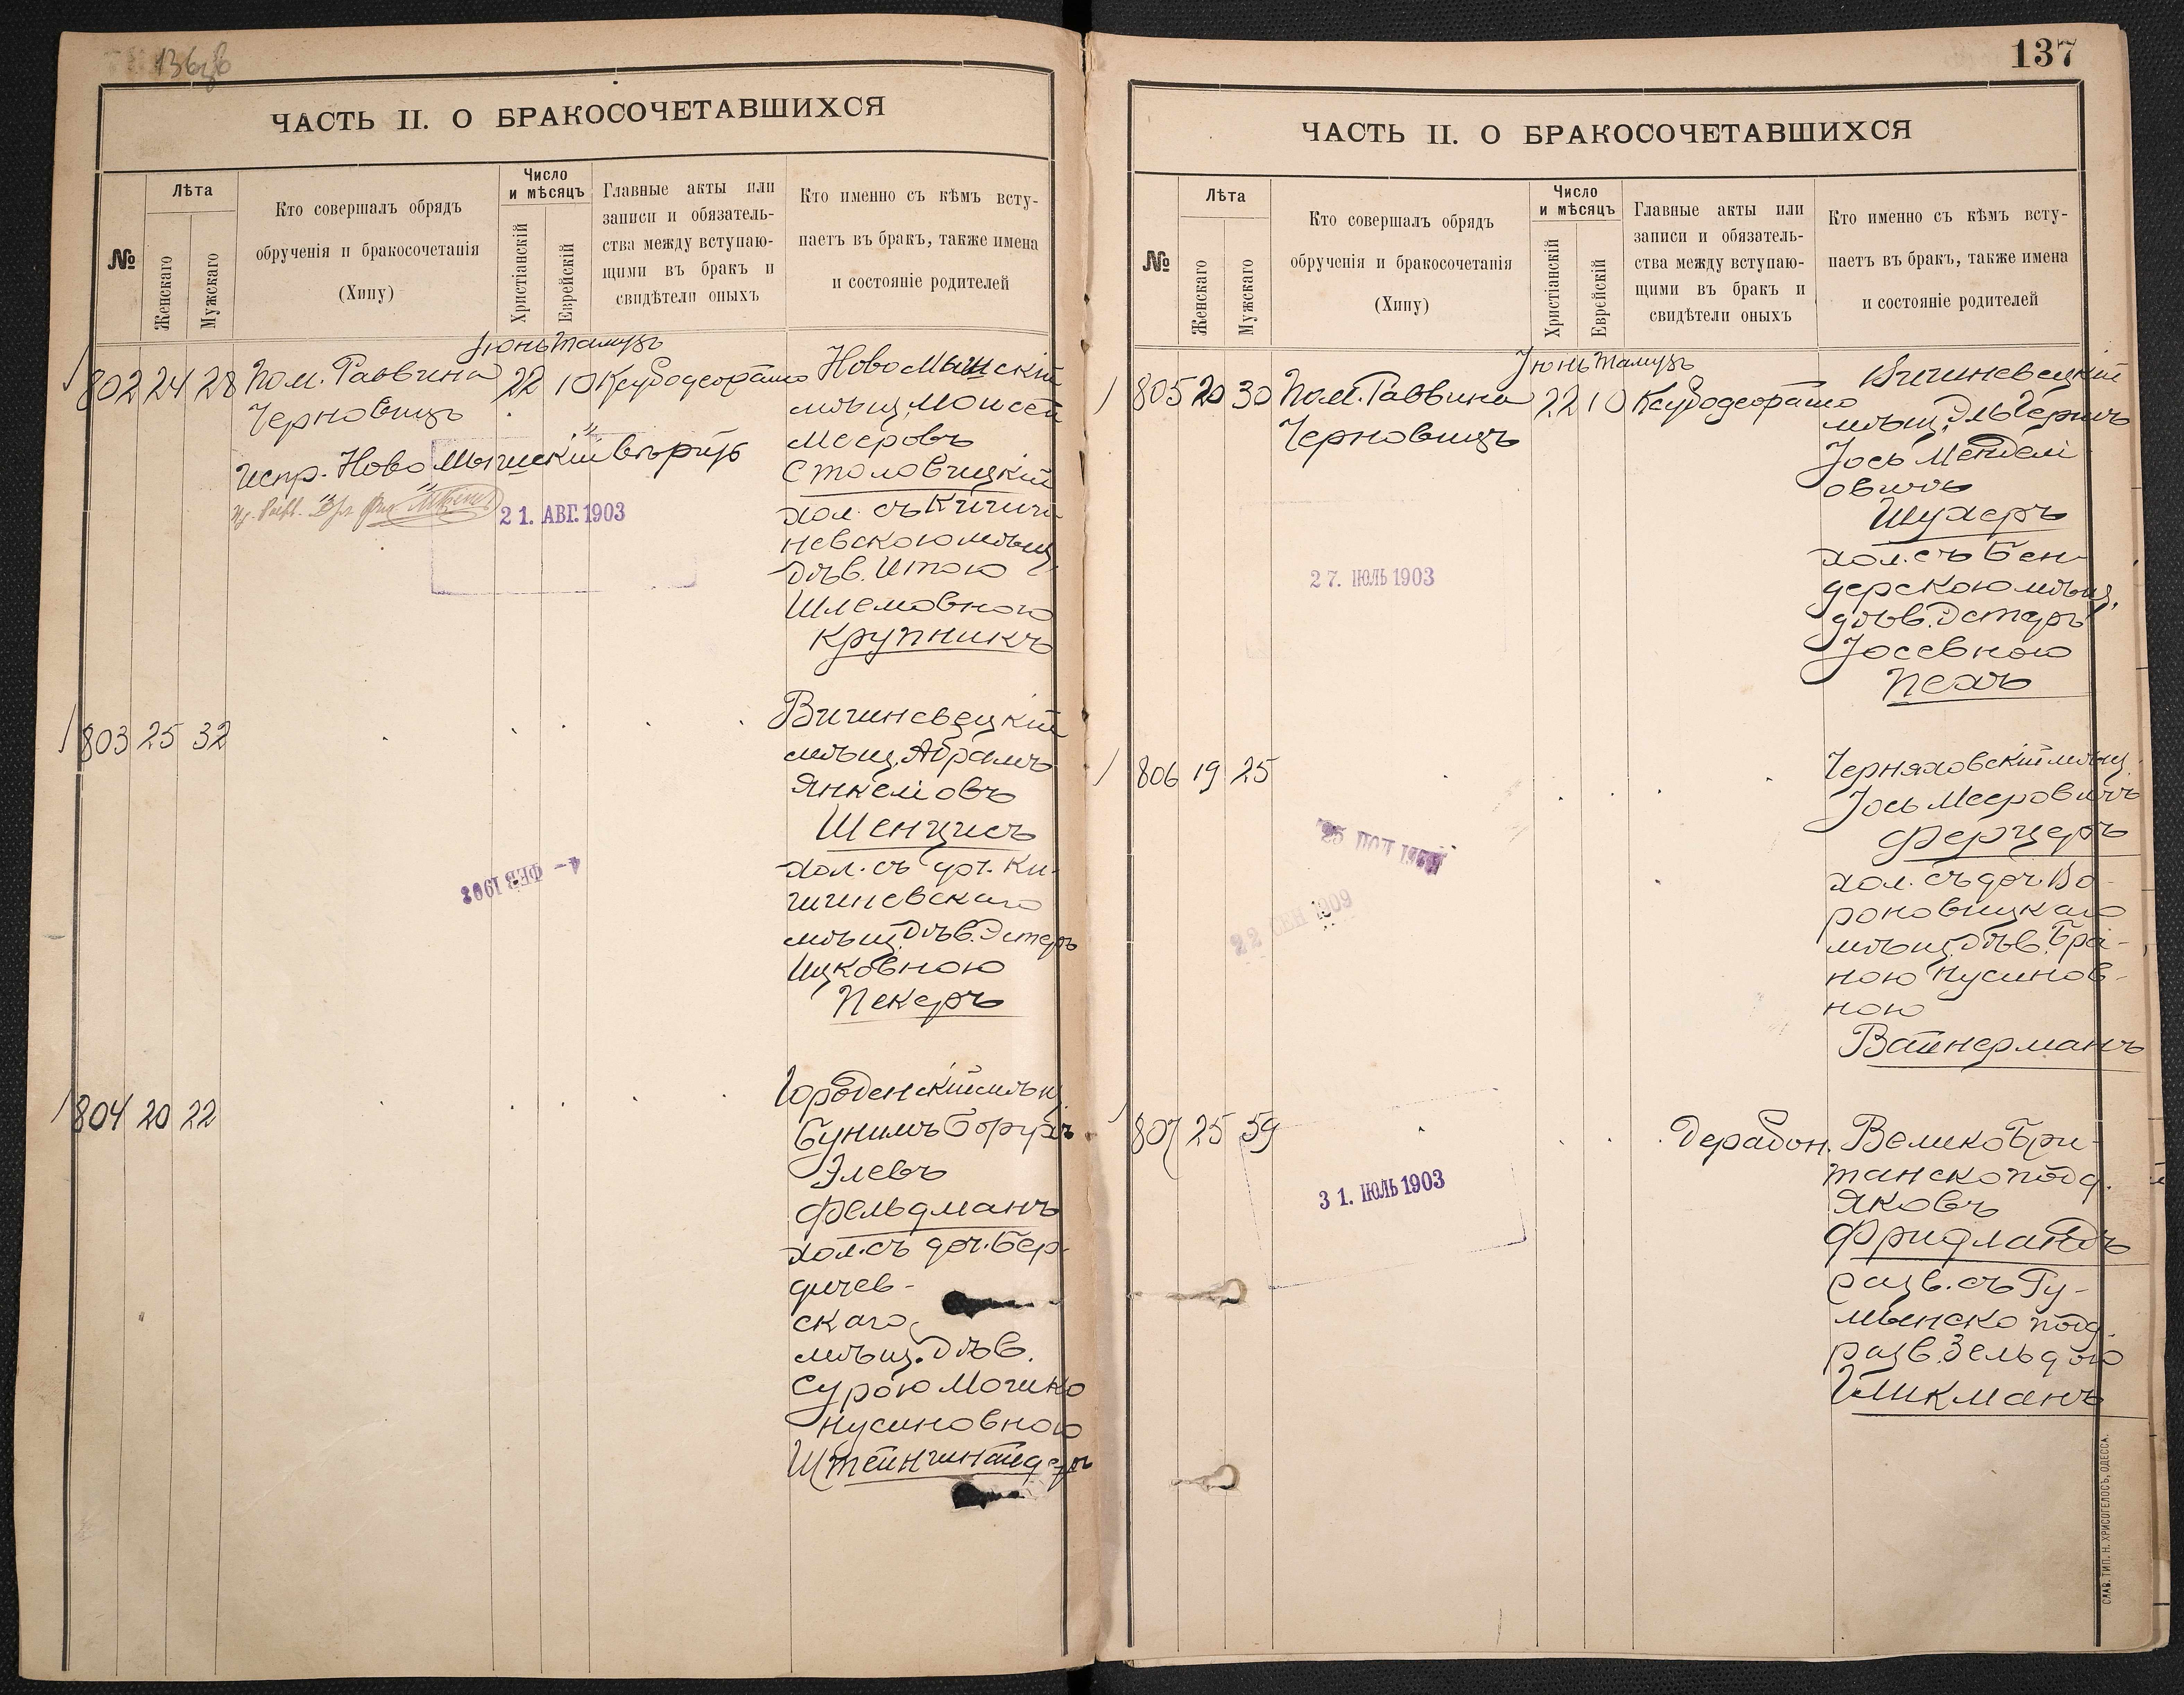 136об
ЧАСТЬ II. О БРАКОСОЧЕТАВШИХСЯ
№
Лѣта
Женскаго
Мужскаго
Кто совершалъ обрядъ
обрученія и бракосочетанія
(Хипу)
Число
и мѣсяцъ
Христіанскій
Еврейскій
Главные акты или
записи и обязатель-
ства между вступаю-
щими въ бракъ и
свидѣтели оныхъ
Кто именно съ кѣмъ всту-
паетъ въ бракъ, также имена
и состояніе родителей
Іюнь Тамузъ
802 24 28 Пом. Раввина 22 10 Ксубодеорайто
Черновицъ
Испр. Ново Мышскій вѣрить
21. АВГ. 1903
НовоМышскій
мѣщ. Моисей
Мееровъ
Столовицкій
хол. съ Кишин
невскою мѣщ.
дѣв. Итою
Шлемовною
Крупникъ
803 25 32
Вишневецкій
мѣщ. Абрамъ
Янкеліовъ
Шенцисъ
хол. съ доч. Ки-
шиневскаго
мѣщ. дѣв. Эстеръ
Ицковною
Пекеръ
4- ФЕВ 1903
804 20 22
Городенскій мѣщ.
Бунимъ Борухъ
Элевъ
Фельдманъ
хол. съ доч. Бер-
дичев-
скаго
мѣщ. дѣв.
Сурою Мошко
Нусиновною
Штейншнайдеръ
137
ЧАСТЬ II. О БРАКОСОЧЕТАВШИХСЯ
№
Лѣта
Женскаго
Мужскаго
Кто совершалъ обрядъ
обрученія и бракосочетанія
(Хипу)
Число
и мѣсяцъ
Христіанскій
Еврейскій
Главные акты или
записи и обязатель-
ства между вступаю-
щими въ бракъ и
свидѣтели оныхъ
Кто именно съ кѣмъ всту-
паетъ въ бракъ, также имена
и состояніе родителей
Іюнь Тамузъ
805 20 30 Пом. Раввина 22 10 Ксубодеорайто
Черновицъ
Вишневецкій
мѣщ.
Іось Менделі
овичъ
Шухеръ
хол. съ Бен-
дерскою мѣщ.
дѣв. Эстеръ
Іосевною
Пехъ
27. ІЮЛЬ 1903
806 19 25
Черняховскій мѣщ.
Іось Мееровичъ
Ферцеръ
хол. съ доч. Во-
роновицкаго
мѣщ. дѣв. Брай-
ною Нусинов-
ною
Вайнерманъ
22 СЕН 1909
807 25 59
Дерабон. ВеликоБри-
танско подд.
Яковъ
Фридландъ
разв. съ Ру-
мынско подд.
разв. Зельдою
Гликманъ
31. ІЮЛЬ 1903
СЛАВ. ТИП. Н. ХРИСОГЕЛОСЪ, ОДЕССА.